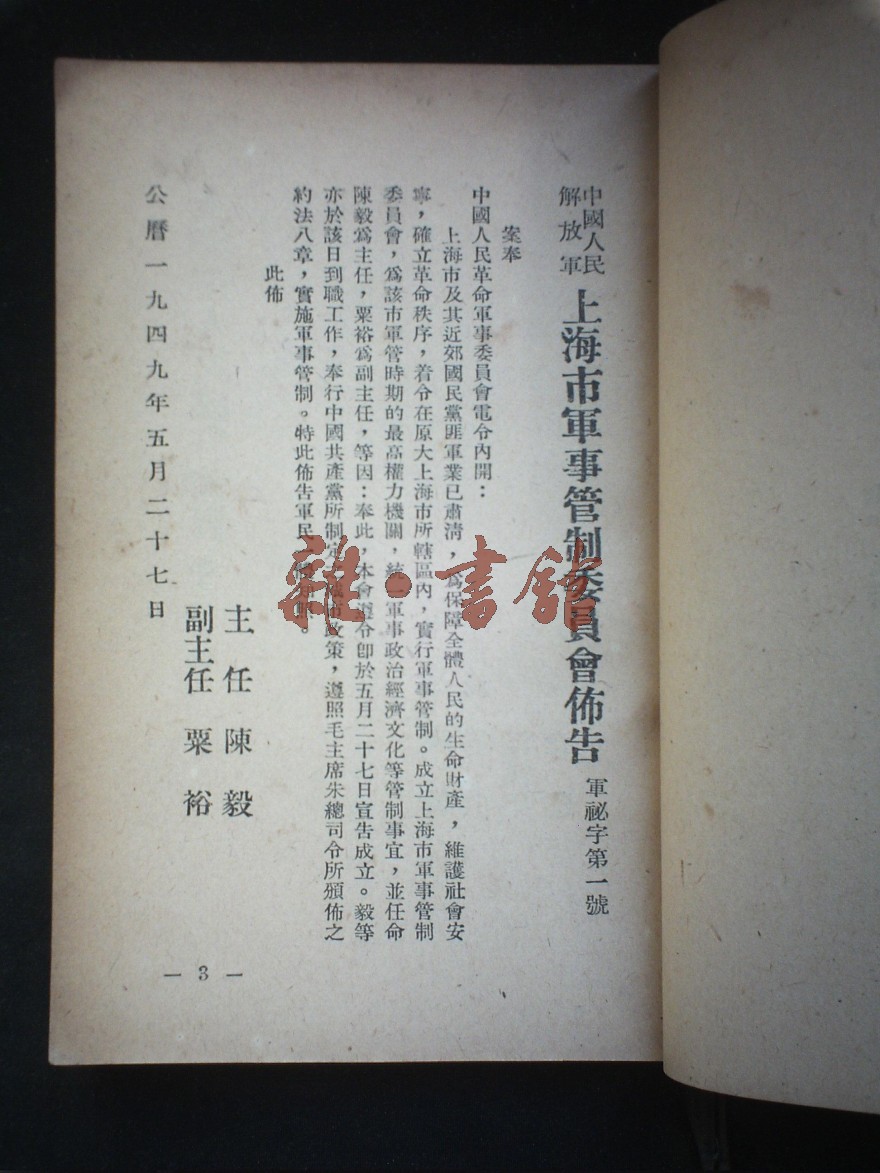 中國人民
解放軍
上海市軍事管制委員會佈告
軍祕字第一號
案奉
中國人民革命軍事委員會電令內開：
上海市及其近郊國民黨匪軍業已肅清，爲保障全體人民的生命財產，維護社會安
寧，確立革命秩序，着令在原大上海市所轄區內，實行軍事管制。成立上海市軍事管制
委員會，爲該市軍管時期的最高權力機關，統一軍事政治經濟文化等管制事宜，並任命
陳毅爲主任，粟裕爲副主任，等因：奉此，本會遵令卽於五月二十七日宣告成立。毅等
亦於該日到職工作，奉行中國共產黨所制定城市政策，遵照毛主席朱總司令所頒佈之
約法八章，實施軍事管制。特此佈告軍民知照。
此佈
主任 陳毅
副主任 粟裕
公曆一九四九年五月二十七日
— 3 —
雜·書館